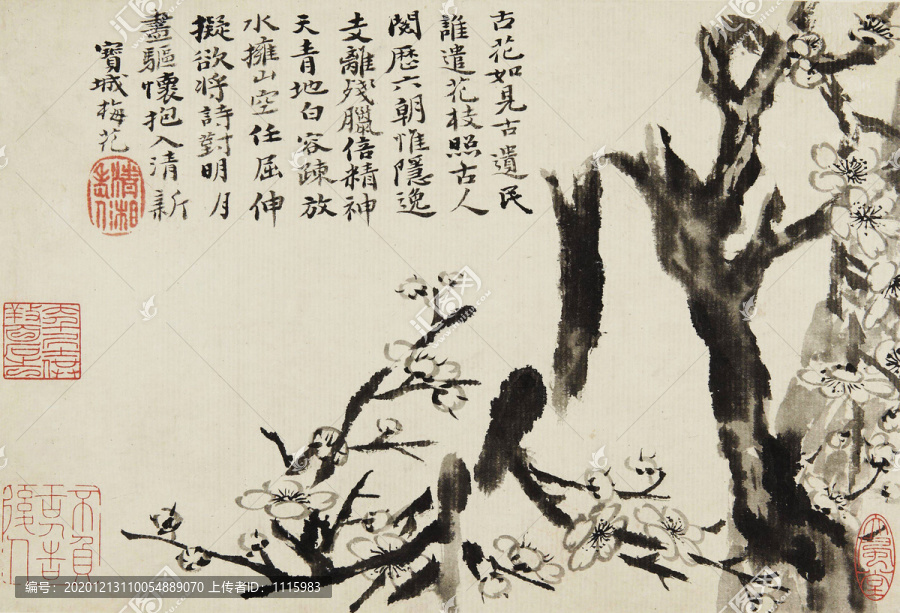 古花如見古遺民
誰遣花枝照古人
閱歷六朝惟隱逸
支離殘臘倍精神
天青地白容疎放
水擁山空任屈伸
擬欲将詩對明月
盡驅懷抱入清新
寶城梅花
清湘
汇图网
编号: 20201213110054889070 上传者ID: 1115983